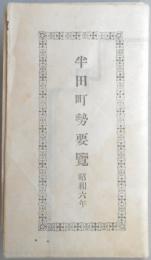 半田町勢要覽
昭和六年